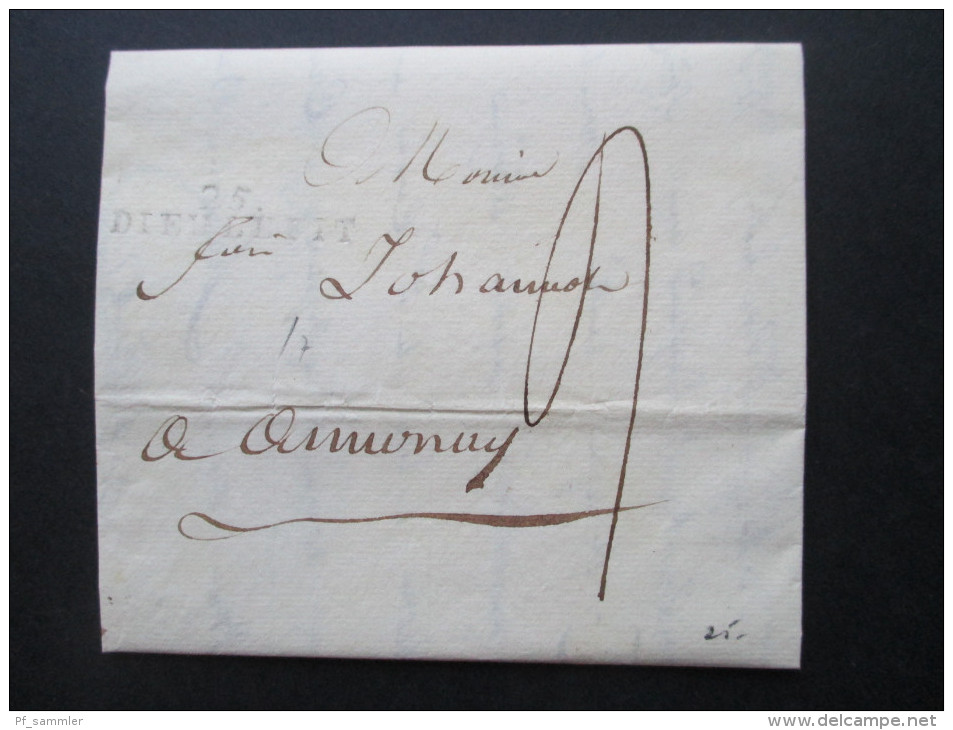 Monsieur
25
DIEULEFIT
frere Johannot
17
a annonay
25.-
Pf_sammler
www.delcampe.net